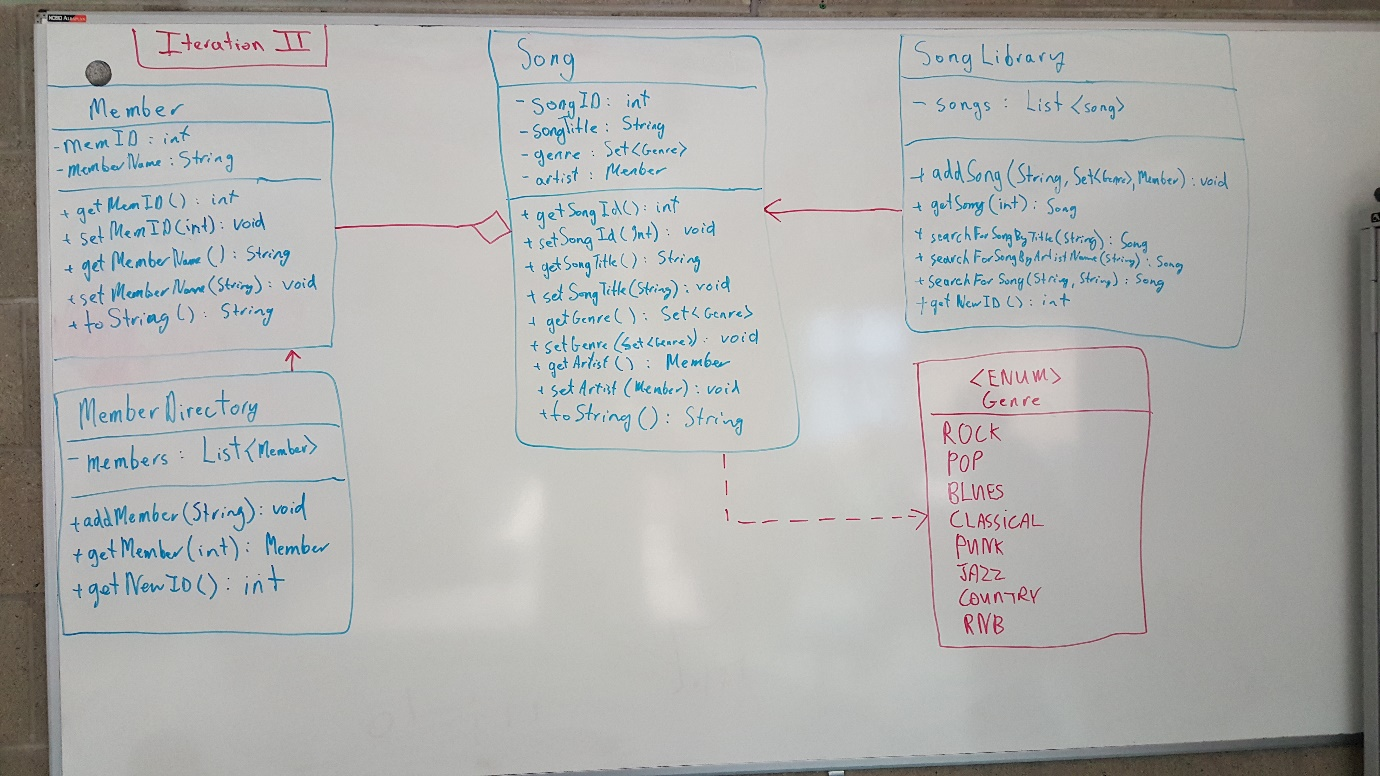 NOBO
Iteration II
Member
- MemID : int
- memberName : String
+ getMemID() : int
+ setMemID(int) : void
+ getMemberName() : String
+ setMemberName(String) : void
+ toString() : String
MemberDirectory
- members : List<Member>
+ addMember(String) : void
+ getMember(int) : Member
+ getNewID() : int
Song
- SongID : int
- songTitle : String
- genre : Set<Genre>
- artist : Member
+ getSongId() : int
+ setSongId(Int) : void
+ getSongTitle() : String
+ setSongTitle(String) : void
+ getGenre() : Set<Genre>
+ setGenre(Set<Genre>) : void
+ getArtist() : Member
+ setArtist(Member) : void
+ toString() : String
SongLibrary
- songs : List<song>
+ addSong(String, Set<Genre>, Member) : void
+ getSong(int) : Song
+ searchForSongByTitle(String) : Song
+ searchForSongByArtistName(String) : Song
+ searchForSong(String, String) : Song
+ getNewID() : int
<ENUM>
Genre
ROCK
POP
BLUES
CLASSICAL
PUNK
JAZZ
COUNTRY
RNB